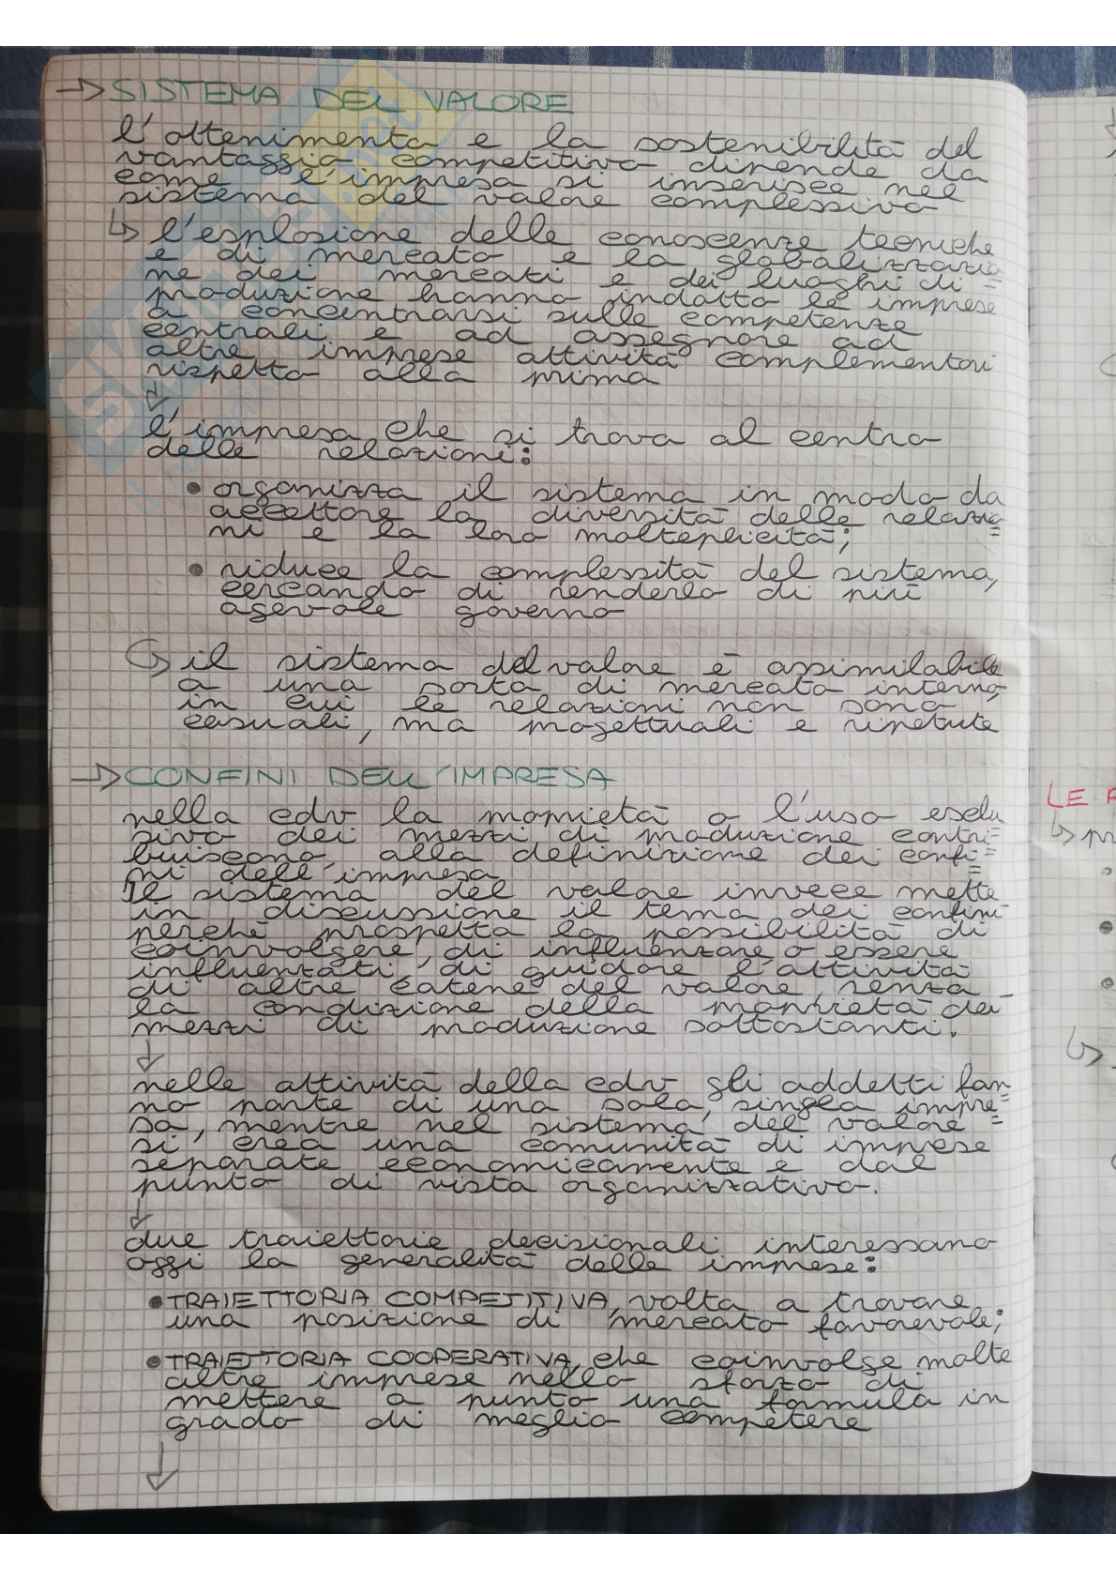 →SISTEMA DEL VALORE
l'ottenimento e la sostenibilità del
vantaggio competitivo dipende da
come l'impresa si inserisce nel
sistema del valore complessivo
↳ l'esplosione delle conoscenze tecniche
e di mercato e la globalizzazio
ne dei mercati e dei luoghi di =
produzione hanno indotto le imprese
a concentrarsi sulle competenze
centrali e ad assegnare ad
altre imprese attività complementari
rispetto alla prima
↓
l'impresa che si trova al centro
delle relazioni:
• organizza il sistema in modo da
accettare la diversità delle relazio=
ni e la loro molteplicità;
• riduce la complessità del sistema,
cercando di renderlo di più
agevole governo
↳ il sistema del valore è assimilabile
a una sorta di mercato interno,
in cui le relazioni non sono
casuali, ma progettuali e ripetute
→CONFINI DELL'IMPRESA
nella cdv la proprietà o l'uso esclu
sivo dei mezzi di produzione contri=
buiscono alla definizione dei confi=
ni dell'impresa.
Il sistema del valore invece mette
in discussione il tema dei confini
perché prospetta la possibilità di
coinvolgere, di influenzare o essere
influenzati, di guidare l'attività
di altre catene del valore, senza
la condizione della proprietà dei
mezzi di produzione sottostanti.
↓
nelle attività della cdv gli addetti fan
no parte di una sola, singla impre=
sa, mentre nel sistema del valore =
si crea una comunità di imprese
separate economicamente e dal
punto di vista organizzativo.
↓
due traiettorie decisionali interessano
oggi la generalità delle imprese:
• TRAIETTORIA COMPETITIVA, volta a trovare
una posizione di mercato favorevole;
• TRAIETTORIA COOPERATIVA, che coinvolge molte
altre imprese nello sforzo di
mettere a punto una formula in
grado di meglio competere
↓
LE